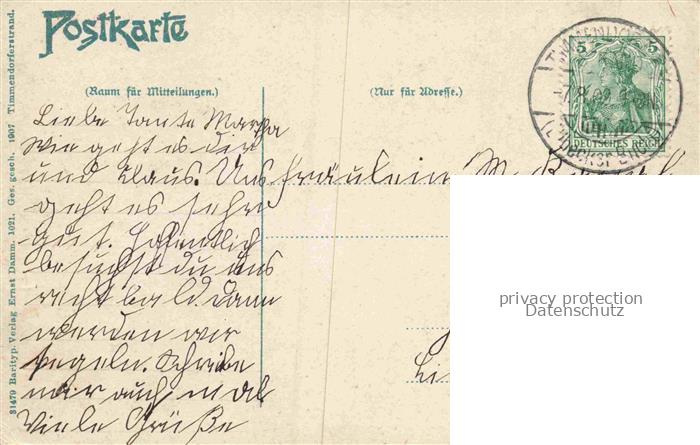 Postkarte
(Raum für Mitteilungen.)
(Nur für Adresse.)
Liebe Tante Martha
wie geht es dir
und Klaus. Uns
geht es sehr
gut. Hoffentlich
besuchst du uns
recht bald. Dann
werden wir
segeln. Schreibe
mir auch mal
Viele Grüße
Fräulein M.
31479 Barityp. Verlag Ernst Damm. 1021. Ges. gesch. 1907 Timmendorferstrand.
5 5
DEUTSCHES REICH
privacy protection
Datenschutz